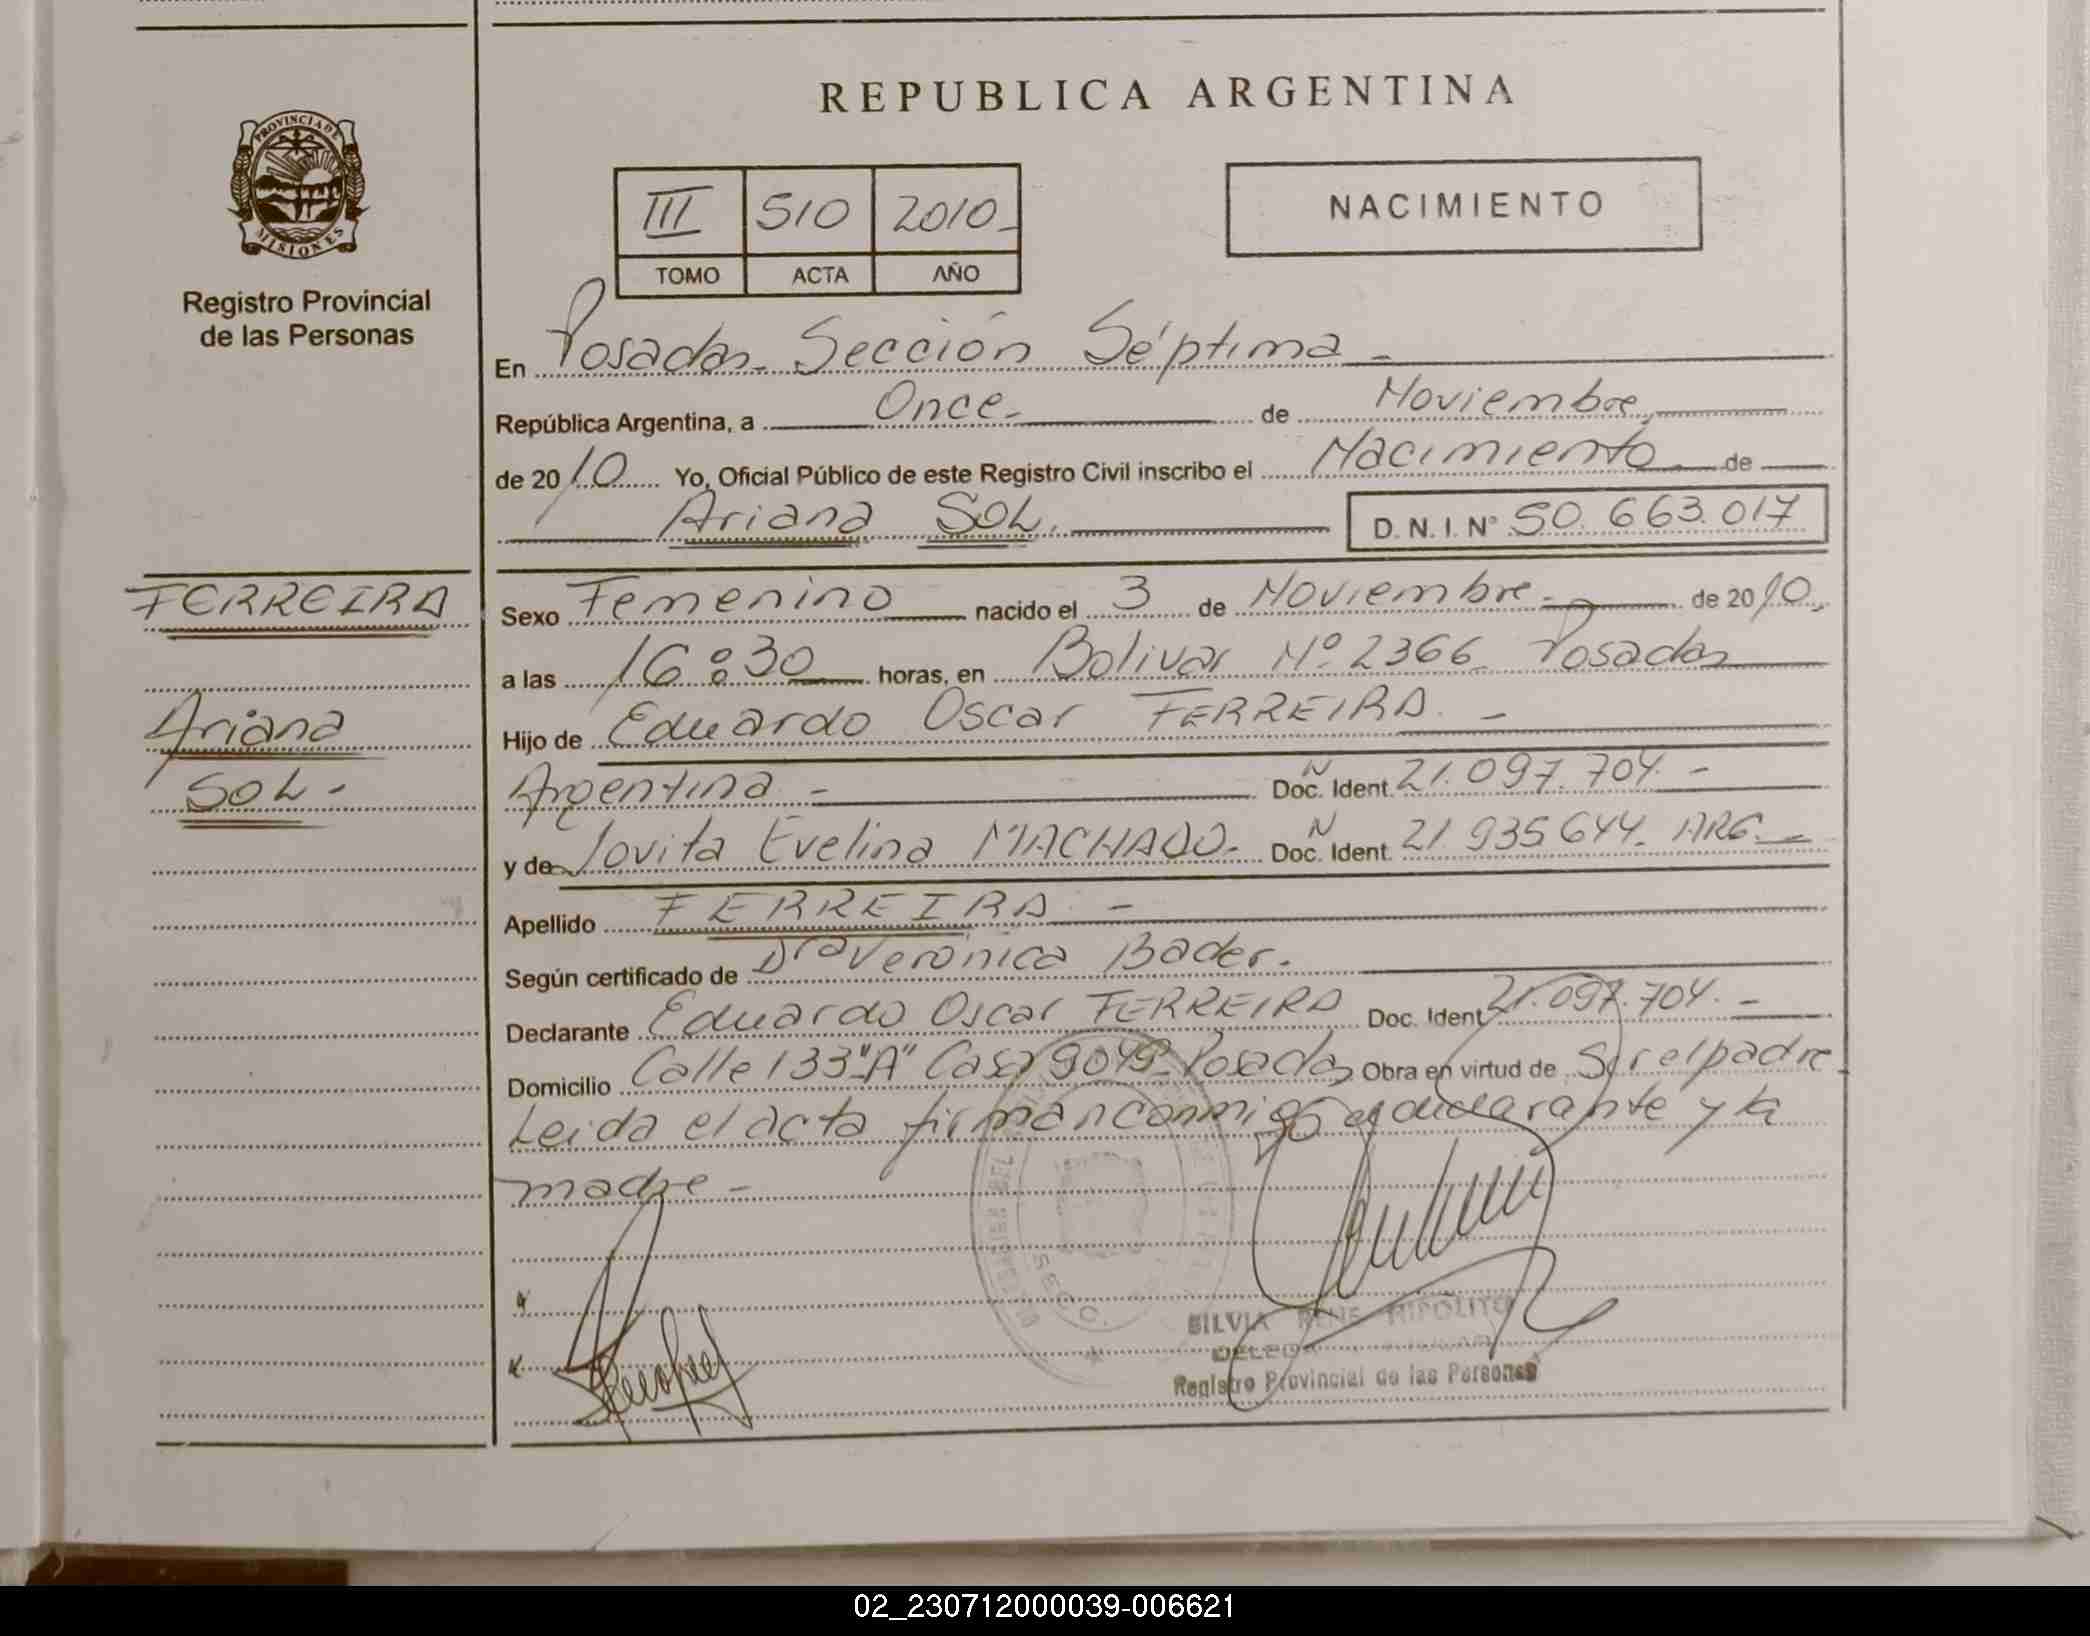 REPUBLICA ARGENTINA
PROVINCIA DE
MISIONES
Registro Provincial
de las Personas
III 510 2010
TOMO ACTA AÑO
NACIMIENTO
En Posadas. Sección Séptima
República Argentina, a Once de Noviembre
de 2010 Yo, Oficial Público de este Registro Civil inscribo el Nacimiento de
Ariana SOL. D.N.I. N° 50.663.017
FERREIRA
Ariana
SOL-
Sexo Femenino nacido el 3 de Noviembre de 2010
a las 16:30 horas, en Bolivar Nº 2366 Posadas
Hijo de Eduardo Oscar FERREIRA.
Argentina - N Doc. Ident. 21.097.704.-
y de Jovita Evelina MACHADO. N Doc. Ident. 21.935644. ARG.-
Apellido FERREIRA -
Según certificado de Dra Verónica Bader.
Declarante Eduardo Oscar FERREIRA Doc. Ident 21.097.704.-
Domicilio Calle 133"A" Casa Posadas Obra en virtud de Ser el padre
Leida el acta firman conmigo el declarante y la
madre -
SECC.
SILVIA RENE HIPOLITO
Registro Provincial de las Personas
02_230712000039-006621